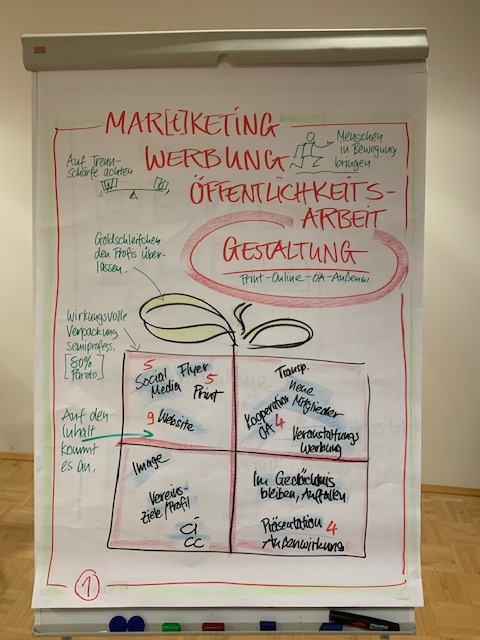 MAR[t]KETING
WERBUNG
ÖFFENTLICHKEITS-
ARBEIT
GESTALTUNG
Print-Online-ÖA-Außenw.
Menschen
in Bewegung
bringen
Auf Trenn-
schärfe achten
W
Goldschleifchen
den Profis über-
lassen.
Wirkungsvolle
Verpackung
semiprofess.
[80%
Pareto]
Auf den
Inhalt
kommt
es an.
5
Social Flyer
Media 5
Print
9 Website
Transp.
neue
Mitglieder
Kooperation
ÖA 4
Veranstaltungs
werbung
Image
Vereins-
ziele/Profil
CI
CC
Im Gedächtnis
bleiben, Auffallen
Präsentation 4
Außenwirkung
1